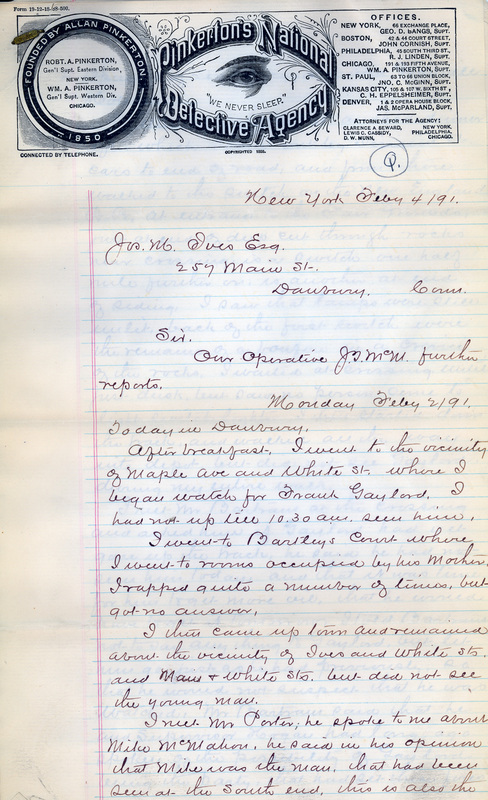 Form 15-12-15-'88-500.
FOUNDED BY ALLAN PINKERTON.
1850
ROBT. A. PINKERTON,
Gen'l Supt. Eastern Division,
NEW YORK.
WM. A. PINKERTON,
Gen'l Supt. Western Div.
CHICAGO.
CONNECTED BY TELEPHONE.
Pinkerton's National
"WE NEVER SLEEP."
Detective Agency
COPYRIGHTED
OFFICES.
NEW YORK, 66 EXCHANGE PLACE,
GEO. D. BANGS, SUPT.
BOSTON, 42 & 44 COURT STREET,
JOHN CORNISH, SUPT.
PHILADELPHIA, 45 SOUTH THIRD ST.,
R. J. LINDEN, SUPT.
CHICAGO, 191 & 193 FIFTH AVENUE,
WM. A. PINKERTON, SUPT.
ST. PAUL, 63 TO 66 UNION BLOCK,
JNO. C. McGINN, SUPT.
KANSAS CITY, 105 & 107 W. SIXTH ST.,
C. H. EPPELSHEIMER, SUPT.
DENVER, 1 & 2 OPERA HOUSE BLOCK,
JAS. McPARLAND, SUPT.
ATTORNEYS FOR THE AGENCY:
CLARENCE A. SEWARD, NEW YORK.
LEWIS C. CASSIDY, PHILADELPHIA.
D. W. MUNN, CHICAGO.
P.
New York Feby 4/91.
Jos. M. Ives Esq.
257 Main St.
Danbury. Conn.
Sir.
Our Operative J.J.McM. further
reports.
Monday Feby 2/91.
Today in Danbury,
After breakfast, I went to the vicinity
of Maple Ave and White St. where I
began watch for Frank Gaylord. I
had not up till 10.30 a.m. seen him.
I went to Bartley's Court where
I went to rooms occupied by his Mother,
I rapped quite a number of times, but
got no answer.
I then came up town and remained
about the vicinity of Ives and White Sts.
and Main & White Sts. but did not see
the young man.
I met Mr Porter, he spoke to me about
Mike McMahon, he said in his opinion
that Mike was the man, that had been
seen at the South end, this is also the